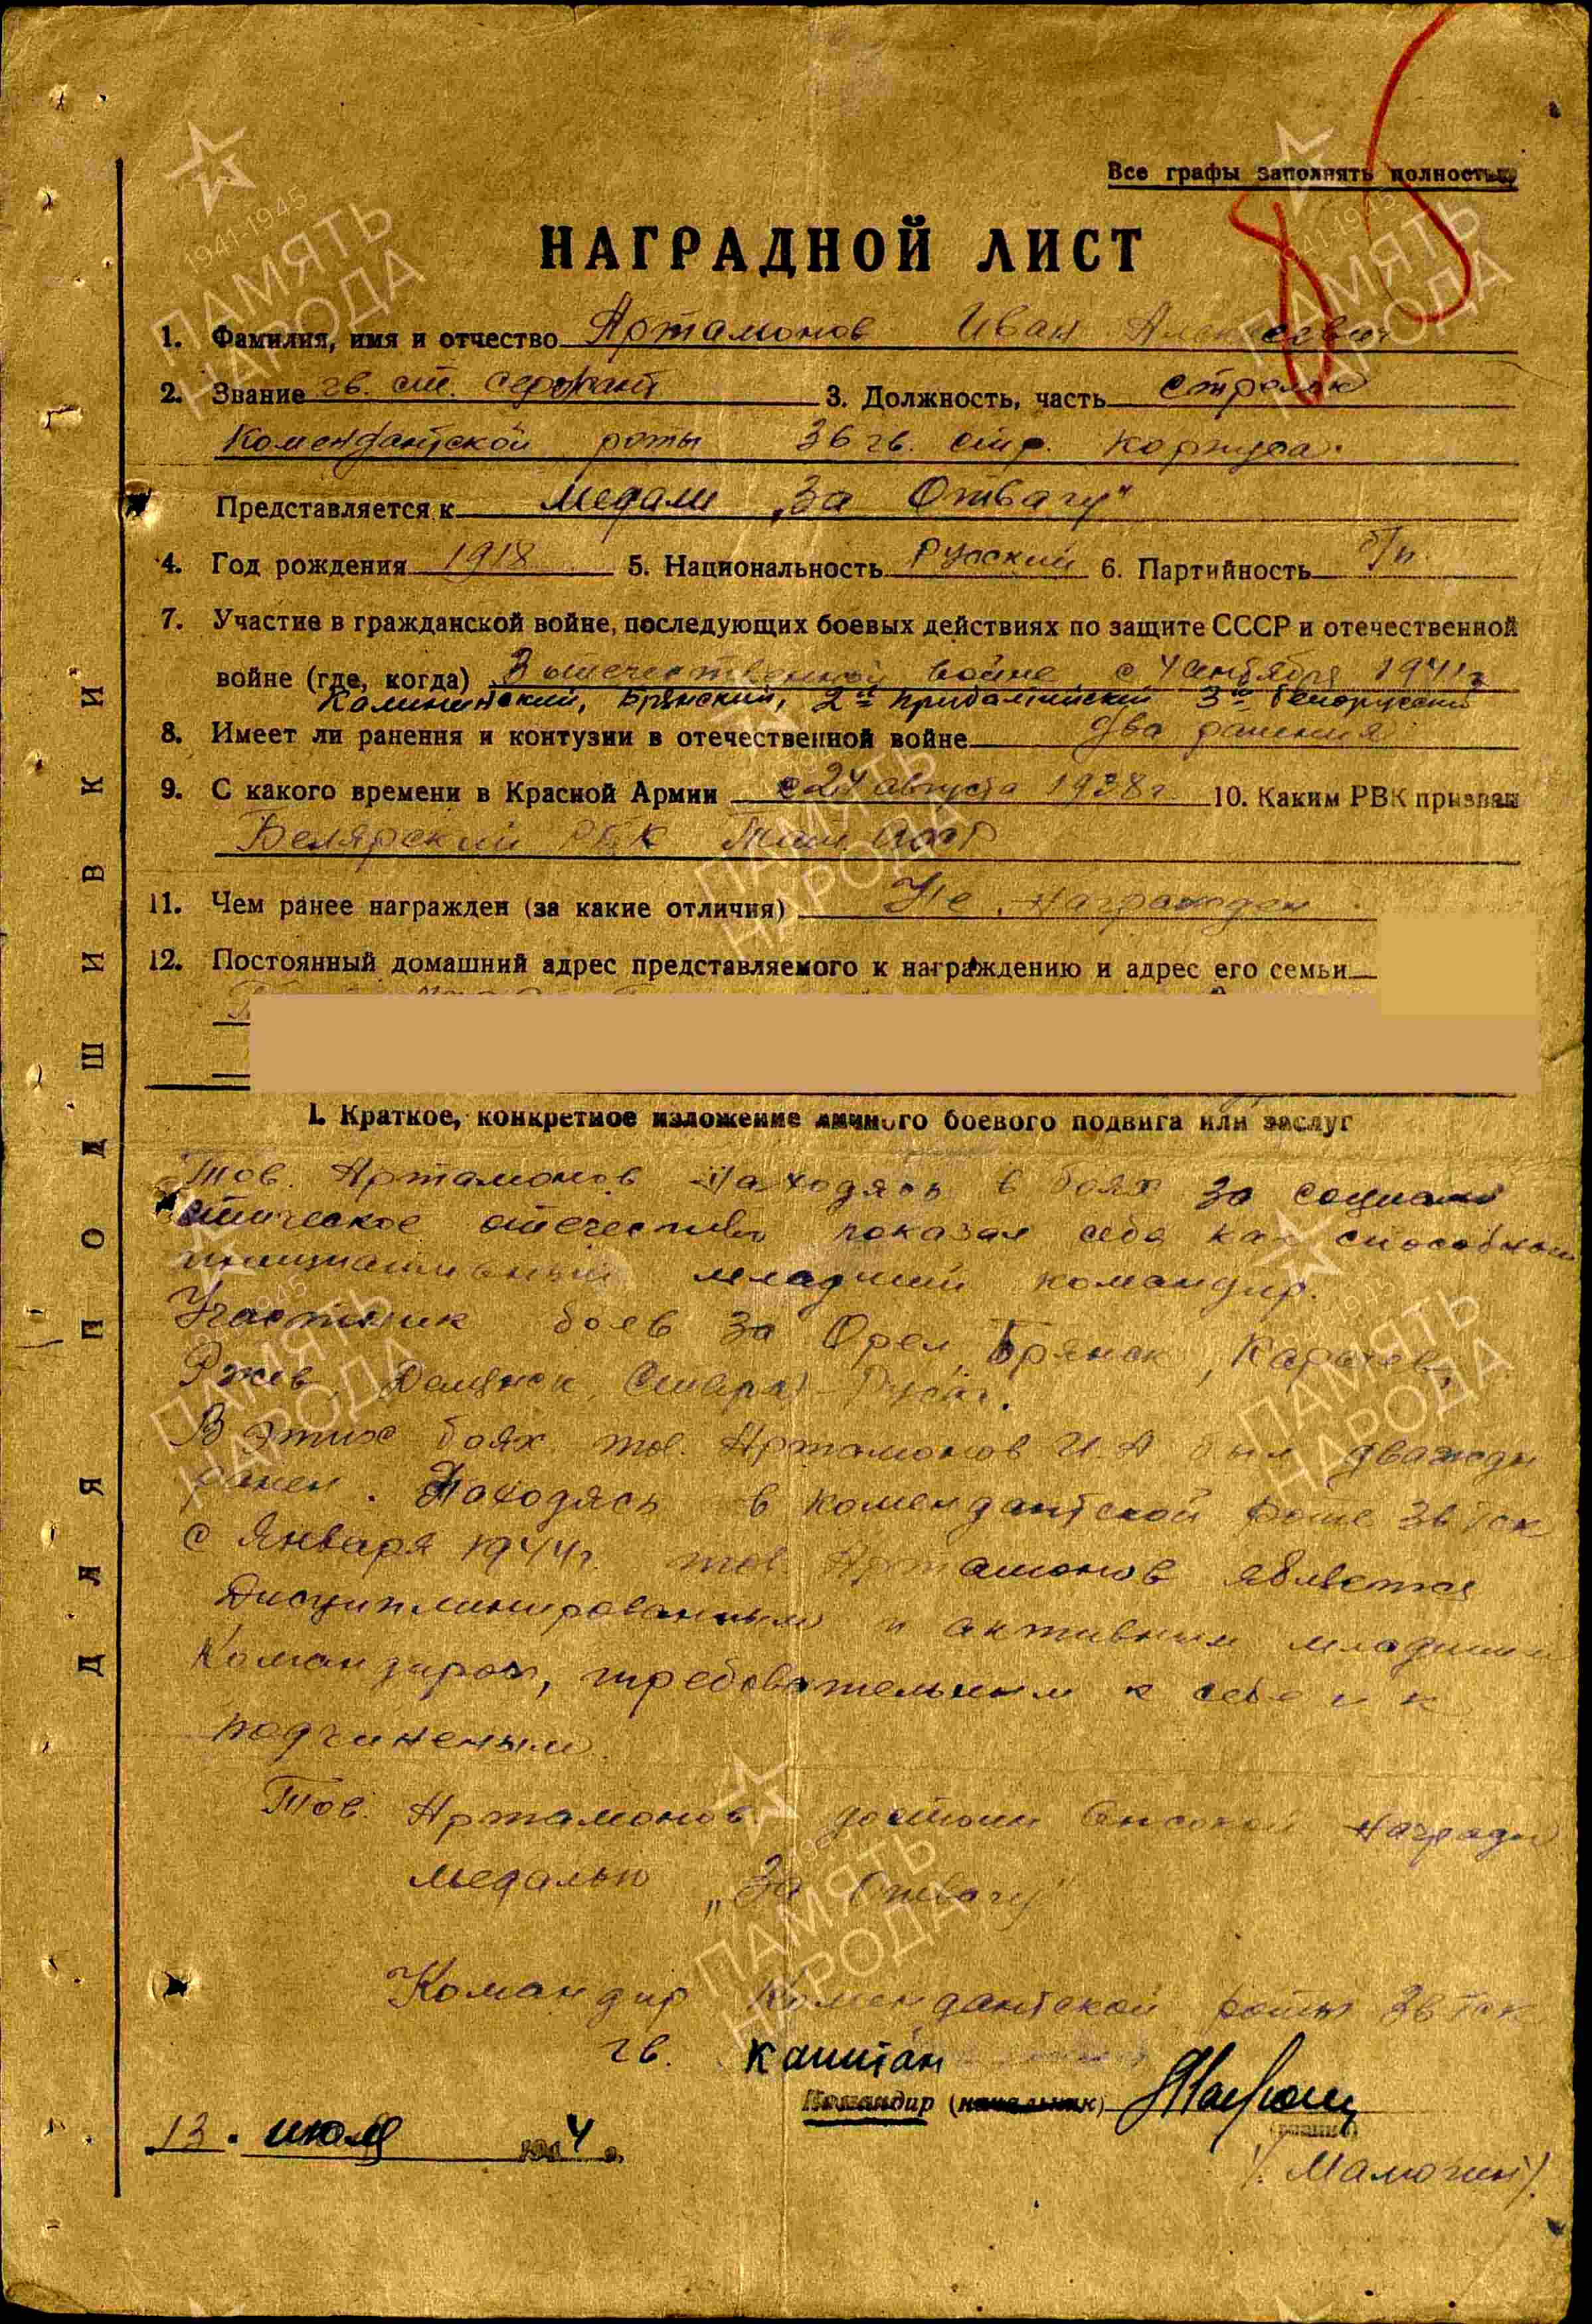 Все графы заполнять полностью
НАГРАДНОЙ ЛИСТ
1. Фамилия, имя и отчество Артамонов Иван Алексеевич
2. Звание гв. ст. сержант 3. Должность, часть стрелок
Комендантской роты 36 гв. стр. корпуса.
Представляется к медали „За Отвагу"
4. Год рождения 1918 5. Национальность Русский 6. Партийность б/п
7. Участие в гражданской войне, последующих боевых действиях по защите СССР и отечественной
войне (где, когда) В отечественной войне с 4 сентября 1941 г
Калининский, Брянский, 2й прибалтийский 3й белорусский
8. Имеет ли ранения и контузии в отечественной войне два ранения
9. С какого времени в Красной Армии с 24 августа 1938 г. 10. Каким РВК призван
Белярский РВК Тат. АССР
11. Чем ранее награжден (за какие отличия) Не награжден
12. Постоянный домашний адрес представляемого к награждению и адрес его семьи
I. Краткое, конкретное изложение личного боевого подвига или заслуг
Тов. Артамонов находясь в боях за социали
стическое отечество показал себя как способный
инициативный младший командир.
Участник боев за Орел, Брянск, Карачев,
Ржев, Демянск, Старая Русса.
В этих боях тов. Артамонов И. А был дважды
ранен. Находясь в комендантской роте 36 гск
с Января 1944 г. тов Артамонов является
дисциплинированным и активным младшим
Командиром, требовательным к себе и к
подчиненым.
Тов. Артамонов достоин высокой награды
медалью „За Отвагу"
Командир Комендантской роты 36 гск
гв. капитан
Командир (начальник)
/Малюгин/.
13. июля 1944 г.
ДЛЯ ПОДШИВКИ
1941-1945
ПАМЯТЬ
НАРОДА
1941-1945
ПАМЯТЬ
НАРОДА
ПАМЯТЬ
НАРОДА
ПАМЯТЬ
НАРОДА
ПАМЯТЬ
НАРОДА
ПАМЯТЬ
НАРОДА